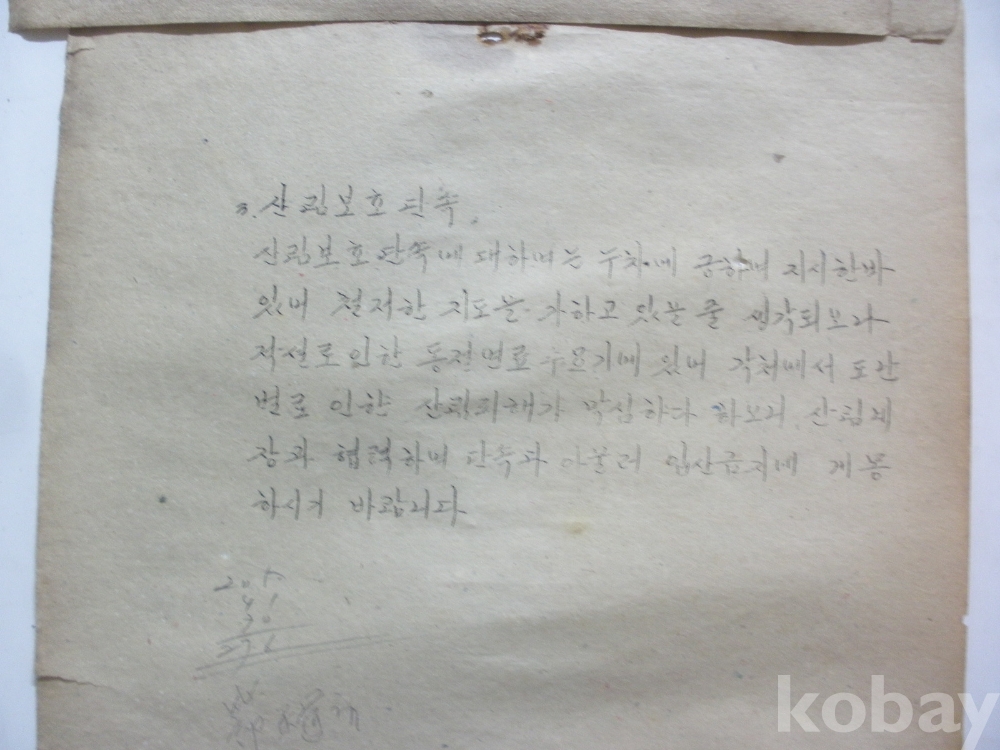 3. 산림보호단속.
산림보호단속에 대하여는 누차에 긍하여 지시한바
있어 철저한 지도를 가하고 있을 줄 생각되오나
적설로 인한 동절연료 수요기에 있어 각처에서 도란
벌로 인한 산림피해가 막심하다 하오니 산림계
장과 협력하여 단속과 아울러 입산금지에 계몽
하시기 바랍니다
kobay